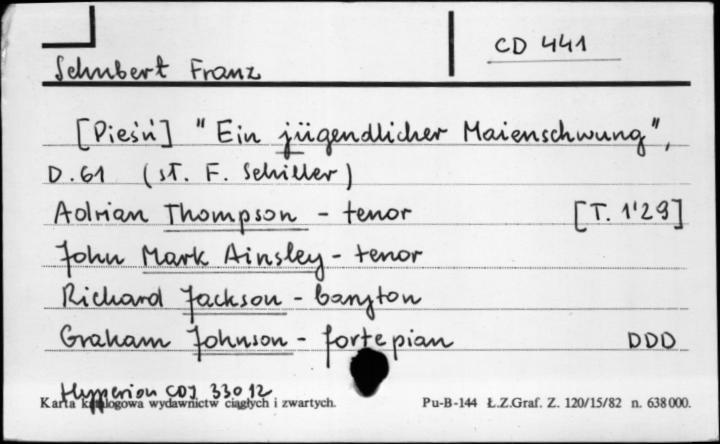 CD 441
Schubert Franz
[Pieśń] "Ein jügendlicher Maienschwung",
D.61 (sł. F. Schiller)
Adrian Thompson - tenor [T. 1'29]
John Mark Ainsley - tenor
Richard Jackson - baryton
Graham Johnson - fortepian DDD
Hyperion CDJ 33012
Karta katalogowa wydawnictw ciągłych i zwartych. Pu-B-144 Ł.Z.Graf. Z. 120/15/82 n. 638000.